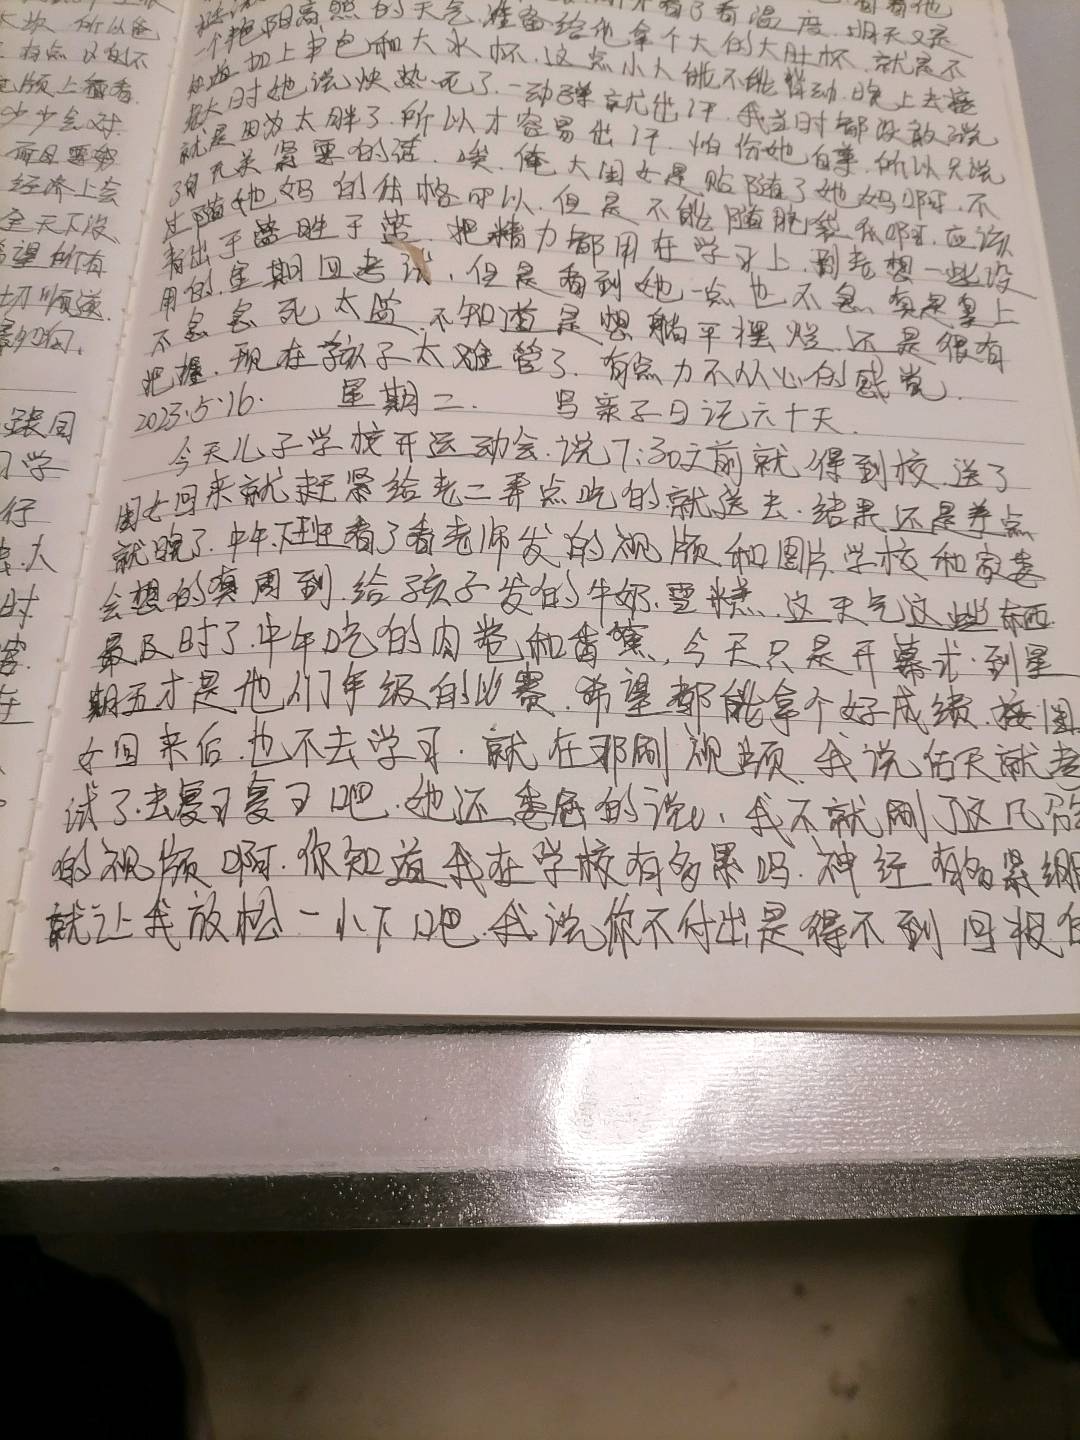 大块 所以爸
有点 这的不
视频上看看
少少会对
而且要努
经济上会
全天下没
希望所有
切顺遂
看了看温度 明天又是
一个艳阳高照的天气 准备给他拿个大的大肚杯 就是不
知道加上书包和大水杯 这点小人能不能背动 晚上去接
老大时她说快热死了 一动弹就出汗 我当时都没敢说
就是因为太胖了 所以才容易出汗 怕伤她自尊 所以只说
了句无关紧要的话 唉 俺大闺女是贴随了她妈啊 不
过随她妈的体格可以 但是不能随脑袋瓜啊 应该
青出于蓝胜于蓝 把精力都用在学习上 别老想一些没
用的 星期四考试 但是看到她一点也不急 真是皇上
不急急死太监 不知道是想躺平摆烂 还是很有
把握 现在孩子太难管了 有点力不从心的感觉
2023.5.16. 星期二. 写亲子日记六十天
今天儿子学校开运动会 说7:30之前就得到校 送了
闺女回来就赶紧给老二弄点吃的就送去 结果还是差点
就晚了 中午下班看了看老师发的视频和图片 学校和家委
会想的真周到 给孩子发的牛奶 雪糕 这天气这些东西
最及时了 中午吃的肉卷和香蕉, 今天只是开幕式 到星
期五才是他们年级的比赛 希望都能拿个好成绩 接闺
女回来后 也不去学习 就在那刷视频 我说后天就考
试了 去复习复习吧 她还委屈的说, 我不就刷了这几分
的视频啊 你知道我在学校有多累吗 神经有多紧绷
就让我放松一小下吧 我说你不付出是得不到回报的
张同
学
行
人
时